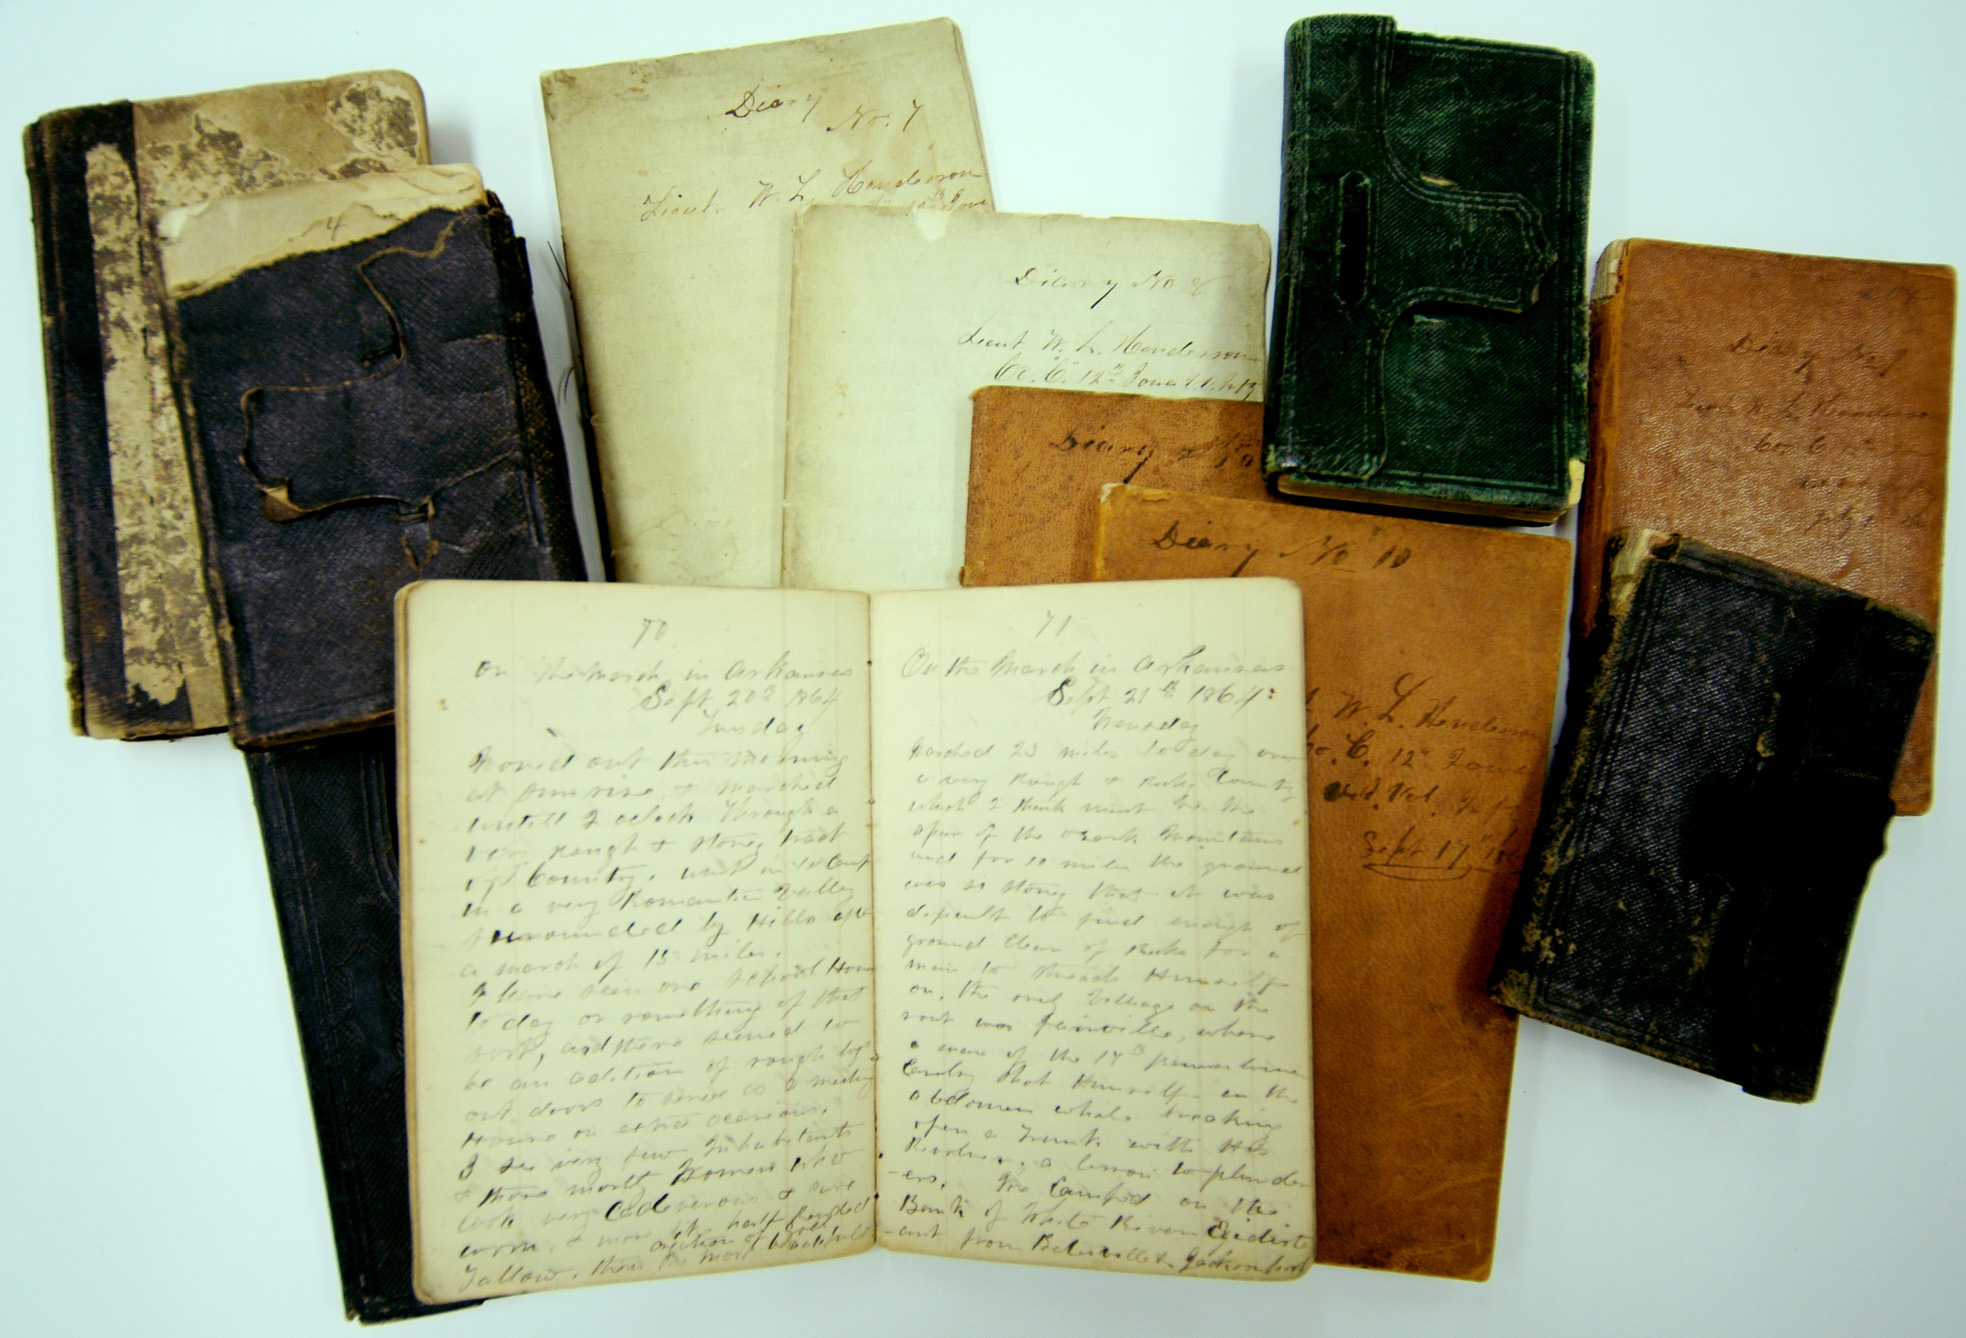 4
Diary
No. 7
Lieut. W. L. Henderson
Diary No 8
Lieut W. L. Henderson
Co. "C." 12th Iowa
Diary No
Diary No 10
W. L. Henderson
Co. C. 12" Iowa
Vet. Vol. Inf
Sept 17"
Diary No 9
Lieut W L Henderson
Co C
70
On the March in Arkansas
Sept. 20th 1864
Tuesday
Moved out this morning
at sunrise, & marched
untill 2 oclock through a
very rough & stoney tract
of Country. went in to Camp
in a very Romantic Valley
surrounded by Hills after
a march of 15 miles.
I have seen one School House
to day or something of that
sort, and there seemed to
be an adition of rough log
out doors to serve as a meeting
House on extra occasions.
I see very few Inhabitants
& those mostly Women who
look very Cadeverous & care
worn, & more like half rended
Tallow, than the most beautifull
71
On the March in Arkansas
Sept 21th 1864:
Wensday
Marched 23 miles to day over
a very rough & Rocky Country
which I think must be the
spur of the ozark Mountains
and for 10 miles the ground
was so stoney that it was
dificult to find enough of
ground Clear of Rocks for a
man to Himself
on, the only Village on the
rout was where
a man of the
Himself in the
abdomen while breaking
open a Trunk with His
Revolver, a lesson to plunder
-ers. We Camped on the
Bank of White River Eqidist
-ant from Batesville & Jacksonport